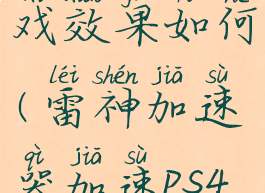 戏效果如何
léi shén jiā sù
(雷神加速
qì jiā sù
器加速PS4